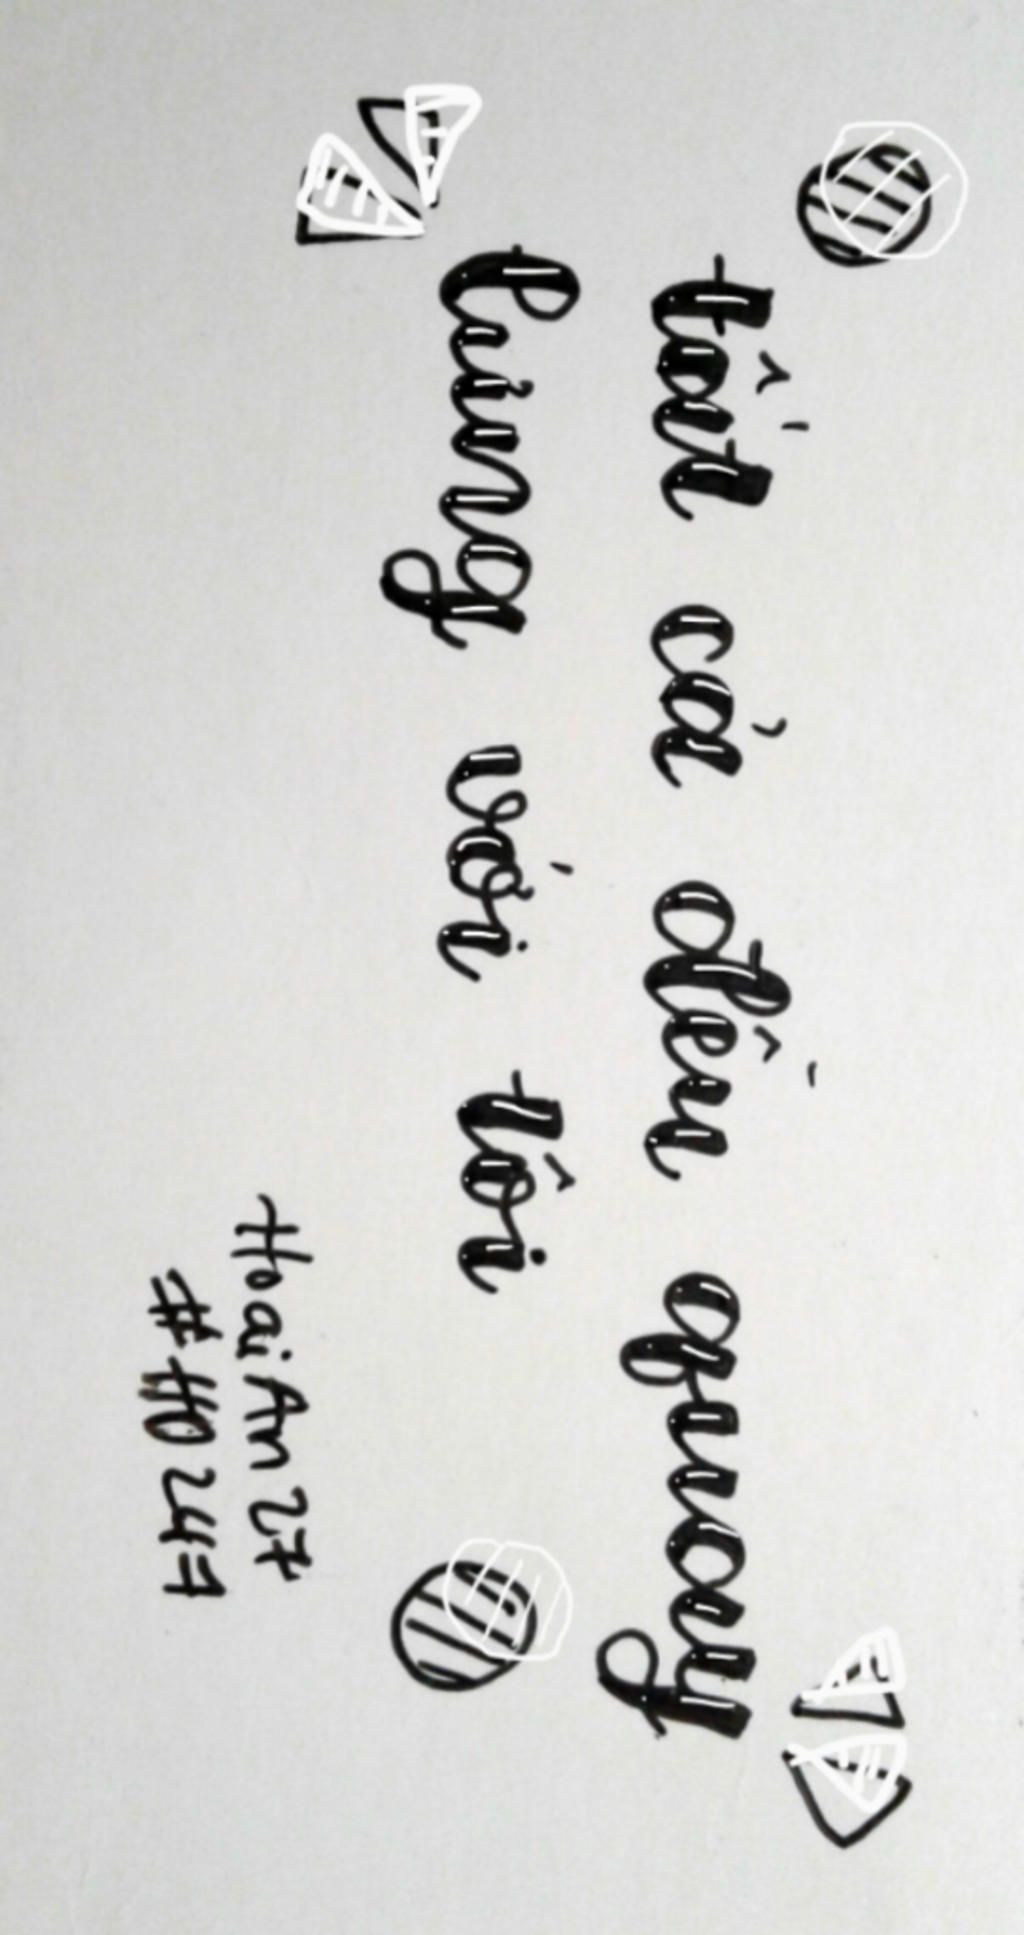 tất cả đều quay
lưng với tôi
HoaiAn27
#HD247